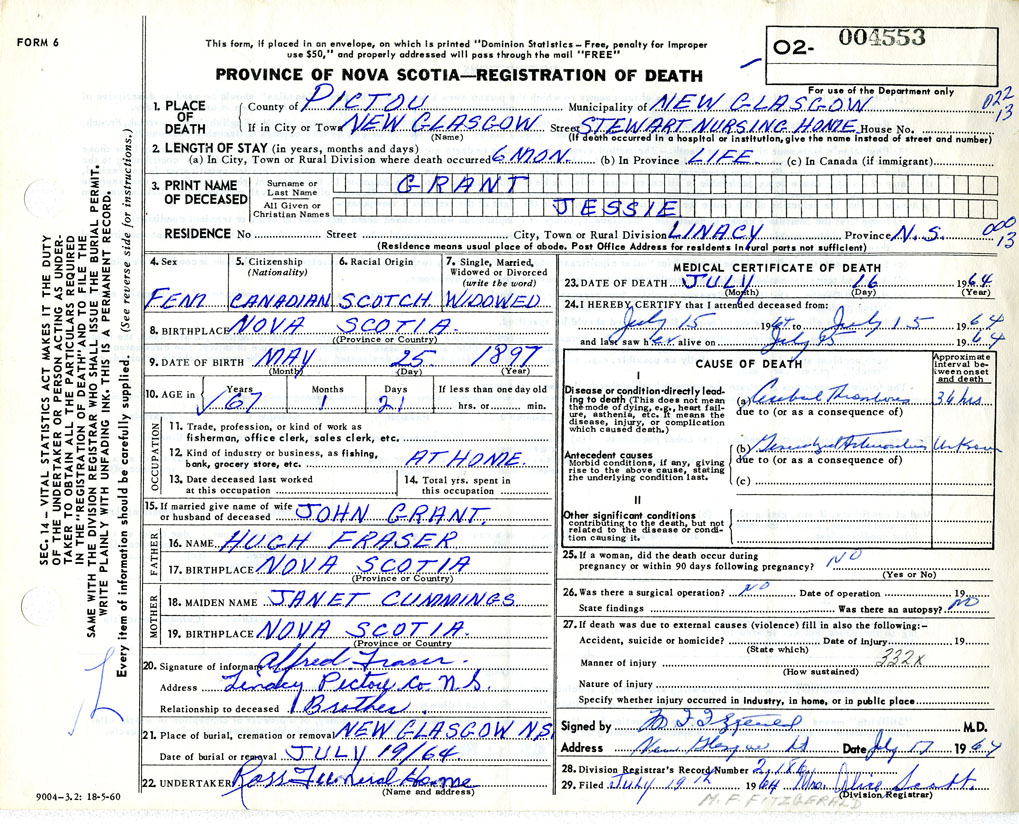 FORM 6
This form, if placed in an envelope, on which is printed "Dominion Statistics – Free, penalty for improper
use $50," and properly addressed will pass through the mail "FREE"
PROVINCE OF NOVA SCOTIA—REGISTRATION OF DEATH
O2- 004553
For use of the Department only
022
13
1. PLACE OF DEATH
County of PICTOU Municipality of NEW GLASGOW
If in City or Town NEW GLASGOW Street STEWART NURSING HOME House No.
(Name) (If death occurred in a hospital or institution, give the name instead of street and number)
2. LENGTH OF STAY (in years, months and days)
(a) In City, Town or Rural Division where death occurred 6 MON. (b) In Province LIFE (c) In Canada (if immigrant)
3. PRINT NAME OF DECEASED
Surname or Last Name GRANT
All Given or Christian Names JESSIE
RESIDENCE No Street City, Town or Rural Division LINACY Province N.S.
000
13
(Residence means usual place of abode. Post Office Address for residents in rural parts not sufficient)
4. Sex FEM
5. Citizenship (Nationality) CANADIAN
6. Racial Origin SCOTCH
7. Single, Married, Widowed or Divorced (write the word) WIDOWED
8. BIRTHPLACE NOVA SCOTIA.
(Province or Country)
9. DATE OF BIRTH MAY 25 1897
(Month) (Day) (Year)
10. AGE in Years 67 Months 1 Days 21 If less than one day old hrs. or min.
OCCUPATION
11. Trade, profession, or kind of work as fisherman, office clerk, sales clerk, etc.
12. Kind of industry or business, as fishing, bank, grocery store, etc. AT HOME.
13. Date deceased last worked at this occupation
14. Total yrs. spent in this occupation
15. If married give name of wife or husband of deceased JOHN GRANT.
FATHER
16. NAME HUGH FRASER
17. BIRTHPLACE NOVA SCOTIA
(Province or Country)
MOTHER
18. MAIDEN NAME JANET CUMMINGS
19. BIRTHPLACE NOVA SCOTIA.
(Province or Country)
20. Signature of informant Alfred Fraser.
Address Linacy Pictou Co N.S.
Relationship to deceased Brother.
21. Place of burial, cremation or removal NEW GLASGOW NS
Date of burial or removal JULY 19/64.
22. UNDERTAKER Ross Funeral Home
(Name and address)
9004-3.2: 18-5-60
MEDICAL CERTIFICATE OF DEATH
23. DATE OF DEATH JULY 16 1964
(Month) (Day) (Year)
24. I HEREBY CERTIFY that I attended deceased from:
July 15 1964 to July 15 1964
and last saw her alive on July 15 1964
CAUSE OF DEATH
Approximate interval between onset and death
I
Disease or condition directly leading to death (This does not mean the mode of dying, e.g., heart failure, asthenia, etc. It means the disease, injury, or complication which caused death.)
(a) Cerebral Thrombosis 36 hrs
due to (or as a consequence of)
Antecedent causes
Morbid conditions, if any, giving rise to the above cause, stating the underlying condition last.
(b) Generalized Arteriosclerosis Unknown
due to (or as a consequence of)
(c)
II
Other significant conditions
contributing to the death, but not related to the disease or condition causing it.
25. If a woman, did the death occur during pregnancy or within 90 days following pregnancy? NO
(Yes or No)
26. Was there a surgical operation? NO Date of operation 19
State findings Was there an autopsy? NO
27. If death was due to external causes (violence) fill in also the following:–
Accident, suicide or homicide? Date of injury 19
(State which)
332X
Manner of injury
(How sustained)
Nature of injury
Specify whether injury occurred in industry, in home, or in public place
Signed by M F Fitzgerald M.D.
Address New Glasgow Date July 17 1964
28. Division Registrar's Record Number
29. Filed July 19th 1964 Mrs. Olive Scott.
(Division Registrar)
M. F. FITZGERALD
SEC. 14 – VITAL STATISTICS ACT MAKES IT THE DUTY
OF THE UNDERTAKER OR PERSON ACTING AS UNDER-
TAKER TO OBTAIN ALL THE PARTICULARS REQUIRED
IN THE "REGISTRATION OF DEATH" AND TO FILE THE
SAME WITH THE DIVISION REGISTRAR WHO SHALL ISSUE THE BURIAL PERMIT.
WRITE PLAINLY WITH UNFADING INK. THIS IS A PERMANENT RECORD.
Every item of information should be carefully supplied. (See reverse side for instructions.)